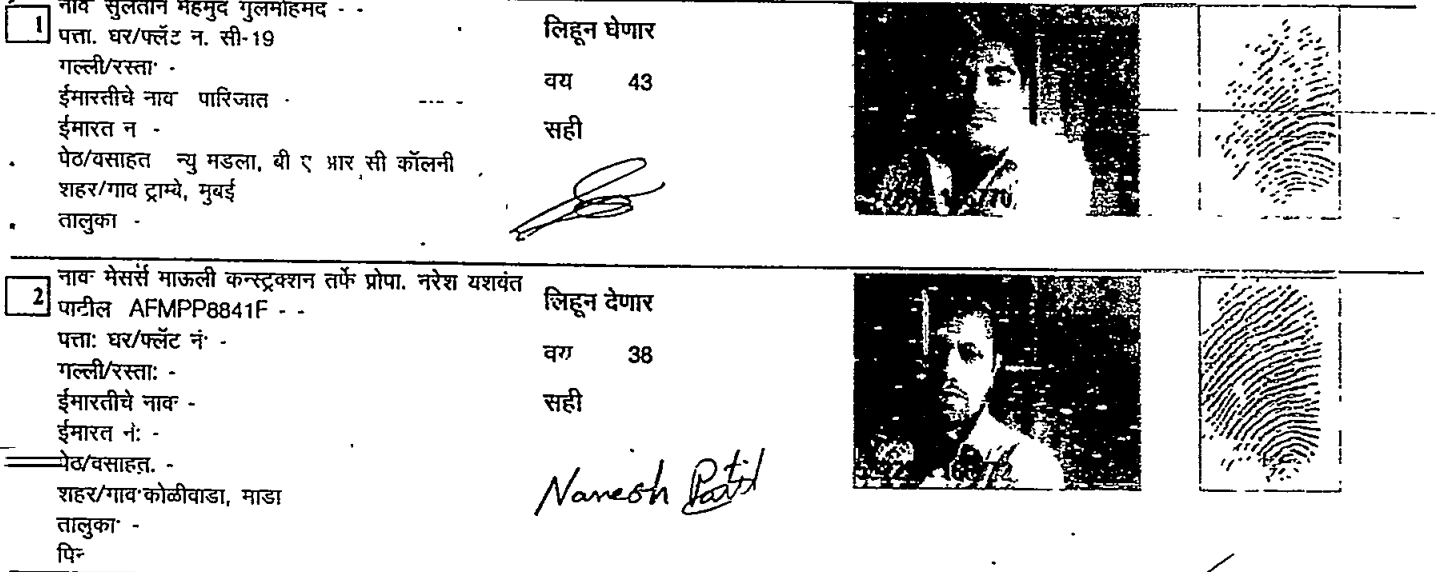 1
नाव सुलतान महमुद गुलमोहमद - -
पत्ता. घर/फ्लॅट न. सी-19
गल्ली/रस्ता -
ईमारतीचे नाव पारिजात -
ईमारत न -
पेठ/वसाहत न्यु मडला, बी ए आर सी कॉलनी
शहर/गाव ट्राम्बे, मुबई
तालुका -
लिहून घेणार
वय 43
सही
2
नाव मेसर्स माऊली कन्स्ट्रक्शन तर्फे प्रोपा. नरेश यशवंत
पाटील AFMPP8841F - -
पत्ता: घर/फ्लॅट नं -
गल्ली/रस्ता: -
ईमारतीचे नाव -
ईमारत नं: -
पेठ/वसाहत. -
शहर/गाव कोळीवाडा, माडा
तालुका -
पिन
लिहून देणार
वय 38
सही
Naresh Patil